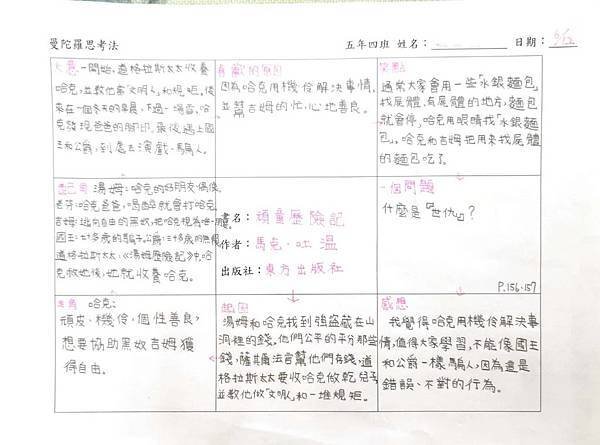 曼陀羅思考法
五年四班 姓名: 日期:
大意 一開始,道格拉斯太太收養
哈克,並教他當「文明人」和規矩。後
來在一個冬天的早晨,下過一場雪,哈
克發現爸爸的腳印。最後遇上國
王和公爵,到處去演戲、騙人。
貢獻的原因
因為哈克用機伶解決事情,
並幫吉姆的忙,心地善良。
笑點
通常大家會用一些「水銀麵包」
找屍體,有屍體的地方,麵包
就會停,哈克用眼睛找「水銀麵
包」。哈克和吉姆把用來找屍體
的麵包吃了。
配角 湯姆:哈克的好朋友、偶像。
老芬:哈克爸爸,喝醉就會打哈克。
吉姆:逃向自由的黑奴,把哈克視為唯一朋友。
國王:七十多歲的騙子。公爵:三十多歲的
道格拉斯太太:《湯姆歷險記》中,哈
克救她後,她就收養哈克。
書名:頑童歷險記
作者:馬克·吐溫
出版社:東方出版社
一個問題
什麼是『世仇』?
P.156.157
主角 哈克:
頑皮、機伶,個性善良,
想要協助黑奴吉姆獲
得自由。
起因
湯姆和哈克找到強盜藏在山
洞裡的錢。他們公平的平分那些
錢,薩契爾法官幫他們存錢,道
格拉斯太太要收哈克做乾兒子,
並教他做「文明人」和一堆規矩。
感想
我覺得哈克用機伶解決事
情,值得大家學習,不能像國王
和公爵一樣騙人,因為這是
錯誤、不對的行為。